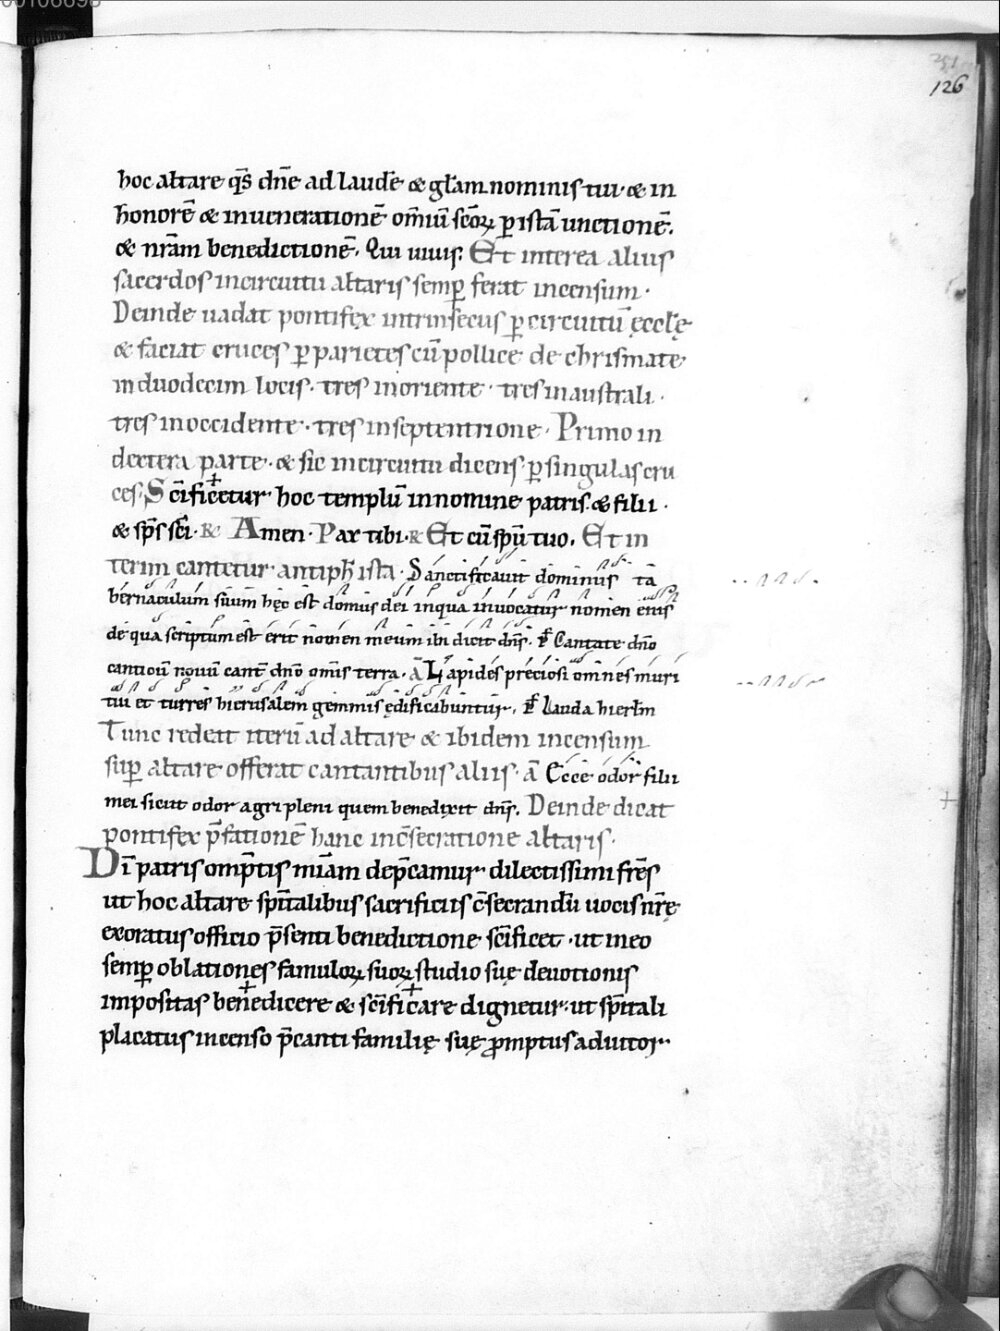 00106698
251
126
hoc altare q̄s dn̄e ad laudē & gl̄am nominis tui & in
honorē & inueneratione͞ om̄iū sc̄oꝝ ꝑ istā unctionē.
& nr̄am benedictionē. Qui uiuis. Et interea alius
sacerdos incircuitu altaris semꝑ ferat incensum.
Deinde uadat pontifex intrinsecus ꝑ circuitū ęccl̄ę
& faciat cruces ꝑ parietes cū pollice de chrismate
in duodecim locis. tres in oriente. tres in australi.
tres in occidente. tres in septentrione. Primo in
dextera parte. & sic in circuitu dicens ꝑ singulas cru
ces. Sc̄ific̄etur + hoc templū in nomine patris. & filii.
& sp̄s sc̄i. R Amen. Pax tibi. R Et cū sp̄u tuo. Et in
terim cantetur antiph̄ ista. Sanctificauit dominus ta
bernaculum suum hęc est domus dei in qua inuocatur nomen eius
de qua scriptum est erit nomen meum ibi dicit dn̄s. P̄ Cantate dn̄o
canticū nouū cant̄ dn̄o omīs terra. ā Lapides preciosi omnes muri
tui et turres hierusalem gemmis ędificabuntur. P̄ Lauda hierl̄m
Tunc redeat iterū ad altare & ibidem incensum
suꝑ altare offerat cantantibus aliis. ā Ecce odor filii
mei sicut odor agri pleni quem benedixit dn̄s. Deinde dicat
pontifex p̄fationē hanc inc̄secratione altaris.
Dī patris omp̄tis mīam dep̄camur dilectissimi fr̄es
ut hoc altare sp̄italibus sacrificiis c̄secrandū uocis nr̄ę
exoratus officio p̄senti benedictione sc̄ificet. ut in eo
semꝑ oblationes famuloꝝ suoꝝ studio suę deuotionis
impositas ben̄edicere + & sc̄ific̄are + dignetur. ut sp̄itali
placatus incenso p̄canti familię suę ꝓmptus adiutor